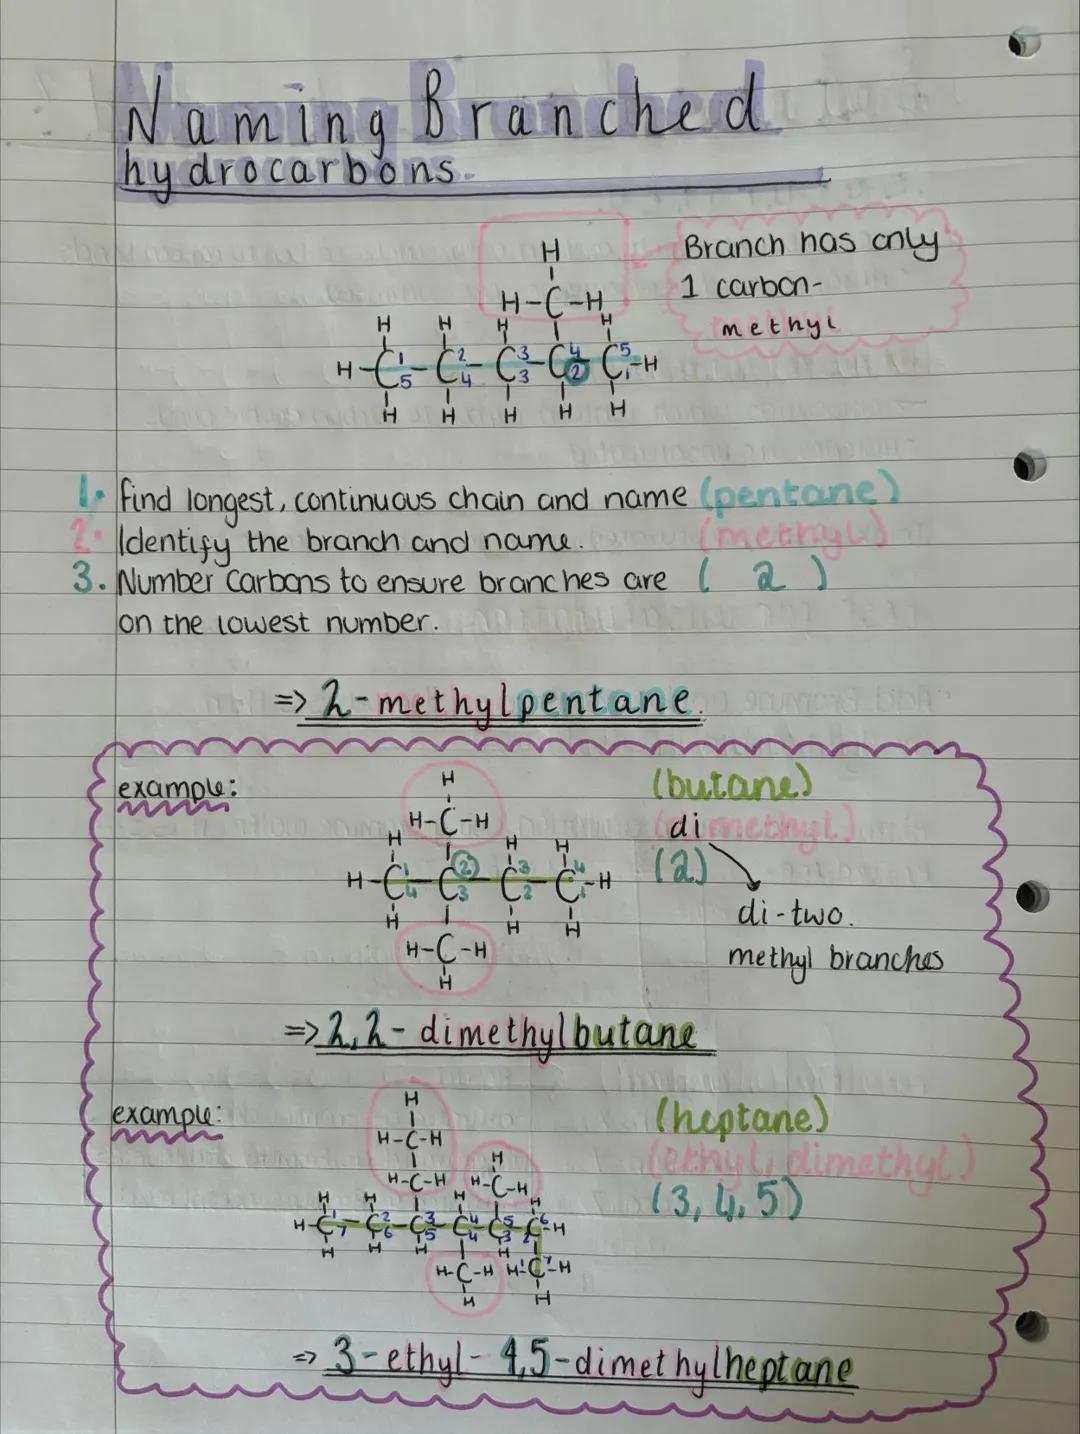 Naming Branched
hydrocarbons.
H
H-C-H
Branch has only
1 carbon-
methyl
H H H H
H-C-C-C-C-C-H
1 2 3 4 5
5 4 3 2 1
H H H H H
1. Find longest, continuous chain and name (pentane)
2. Identify the branch and name. (methyl)
3. Number Carbons to ensure branches are ( 2 )
on the lowest number.
=> 2-methylpentane.
example:
(butane)
(dimethyl)
(2)
di-two.
methyl branches
H
H-C-H
H H H
H-C-C-C-C-H
1 2 3 4
4 3 2 1
H H H
H-C-H
H
=> 2,2-dimethylbutane
example:
(heptane)
(ethyl, dimethyl)
(3, 4, 5)
H
H-C-H
H
H-C-H H-C-H
H H H H
H-C-C-C-C-C-C-H
1 2 3 4 5 6
7 6 5 4 3 2
H H H H
H-C-H H-C-H
H H
=> 3-ethyl-4,5-dimethylheptane